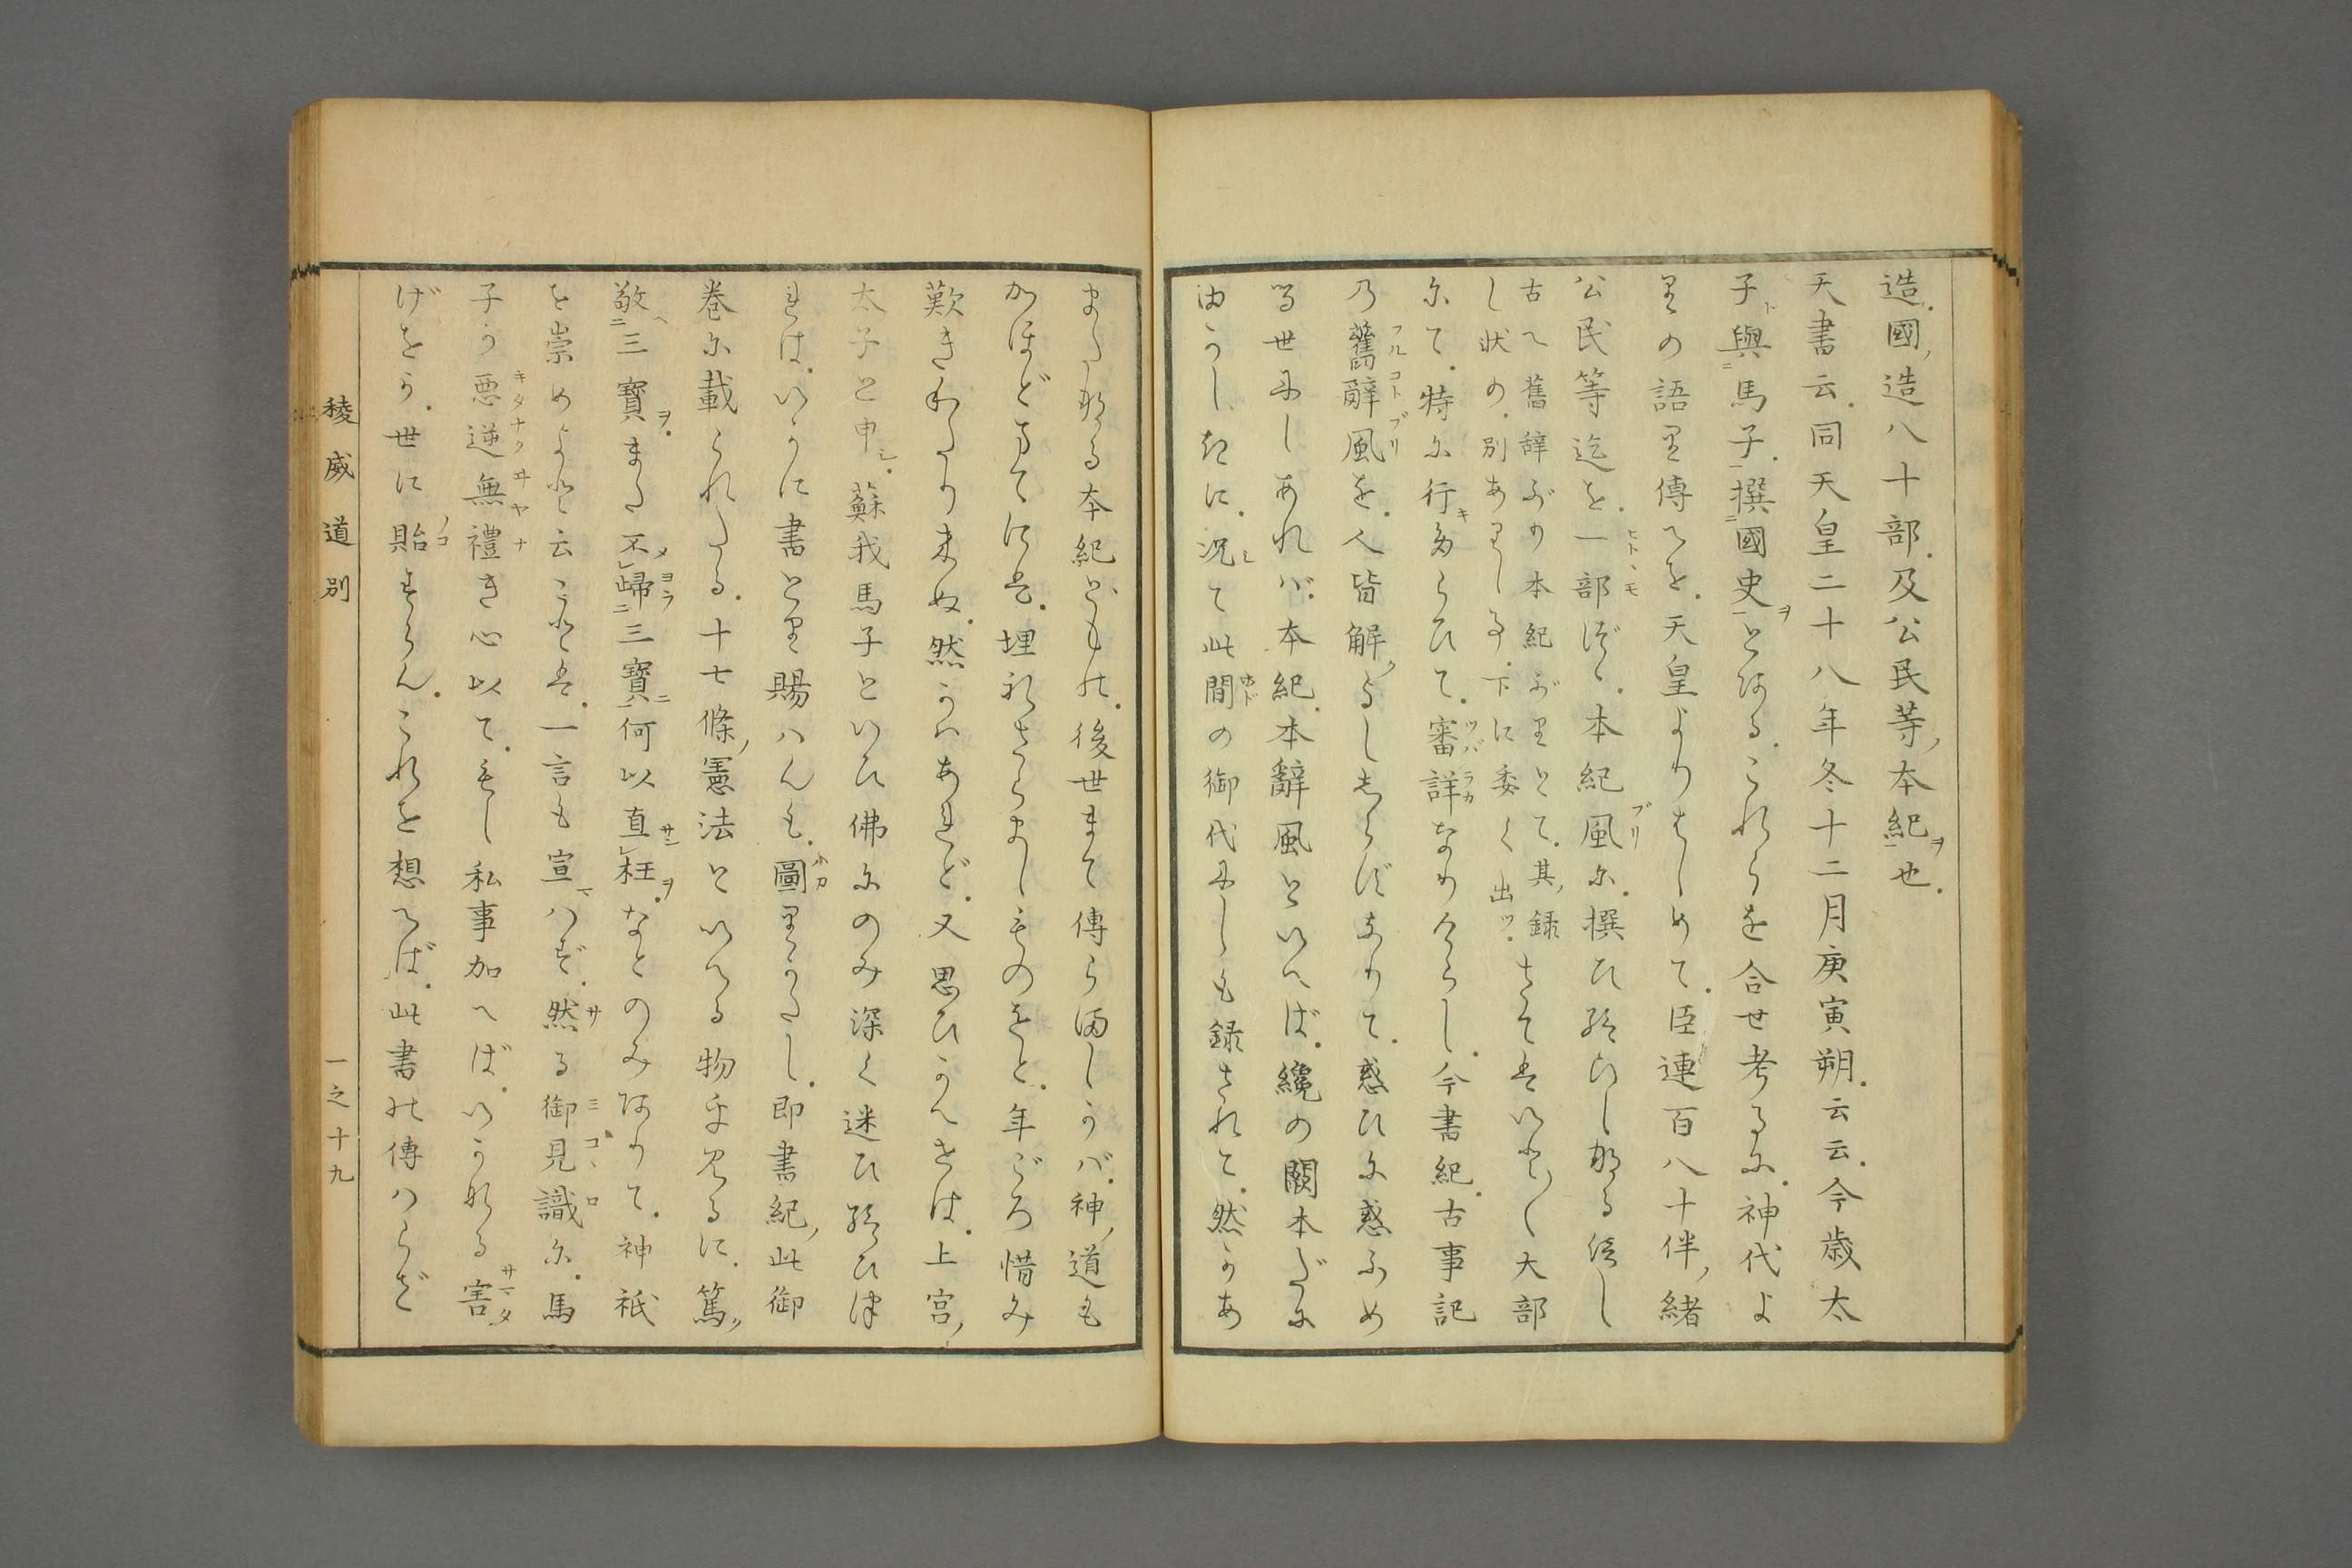 造。國ノ造八十部。及公民等ノ本紀ヲ也。
天書云。同天皇二十八年冬十二月庚寅朔。云云。今歳太
子與馬子。撰國史ヲとある。これらを合せ考るに。神代よ
りの語り傳へを。天皇よりはしめて。臣連百八十伴ノ緒
公民等迄を。一部づゝ。本紀風に。撰ひ給ひしなる信し
古へ舊辞ぶり本紀ぶりとて。其ノ録
し状の。別ありし事。下に委く出ツ。さては いと〱大部
にて。特に行多らひて。審詳なりけらし。今書紀。古事記
乃舊辭風を。人皆解ノよしあらずなりて。惑ひに惑ふめ
る世にしあれバ。本紀。本辭風といへば。纔の闕本だに
由かしきに。况て此間の御代にしも録されて。然かあ
またなる本紀どもの。後世まて傳ら満しかバ。神ノ道も
かほどまてには。埋れさらましものをと。年ごろ惜み
歎きわたり来ぬ。然かハあれど。又思ひかへせは。上宮ノ
太子と申シ。蘇我馬子といひ佛にのみ深く迷ひ給ひつ
れは。いかに書とり賜ハんも。圖りかたし。即書紀ノ此御
巻に載られたる。十七條ノ憲法といへる物を見るに。篤ク
敬三寳ヲ。また不歸三寳何以直枉ヲ。なとのみありて。神祇
を崇めよと云ことは。一言も宣ハず。然る御見識に。馬
子か悪逆無禮き心以て。もし私事加へば。いかなる害
げをか。世に貽すらん。これを想へば。此書の傳ハらざ
稜威道別
一之十九